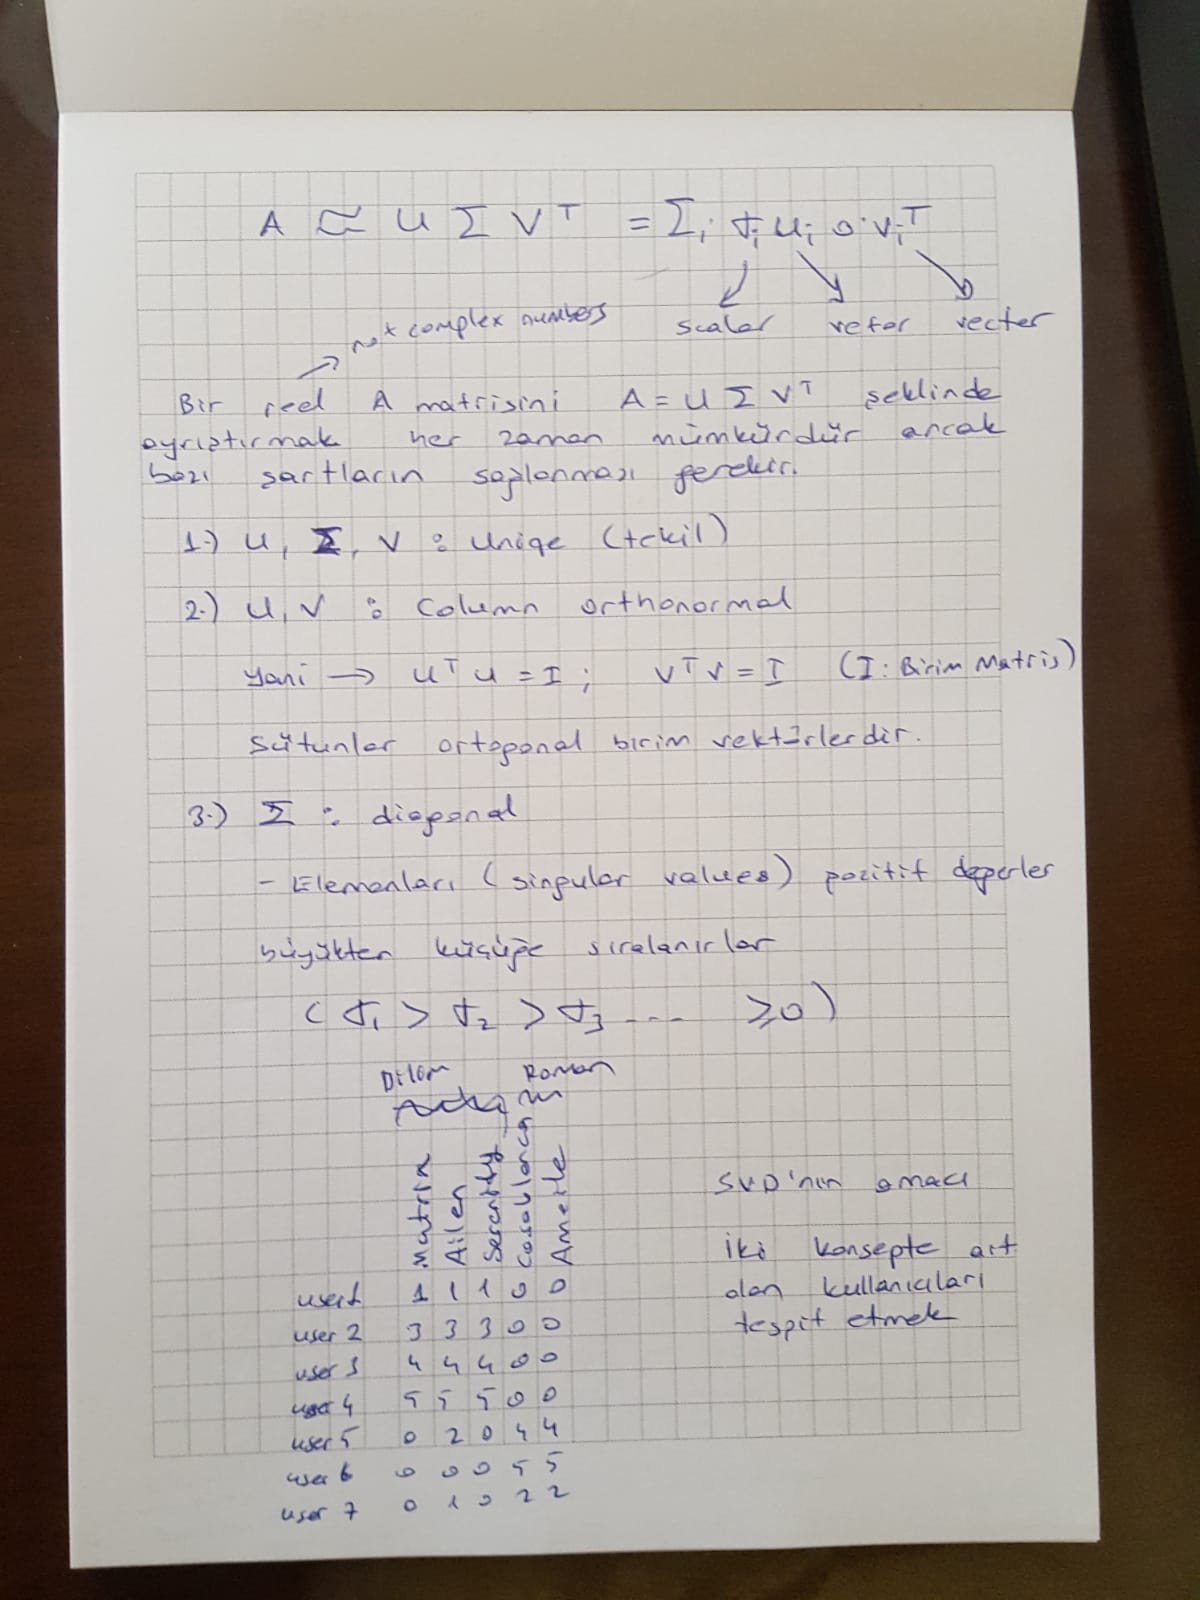 A ≅ U Σ V^T = Σ_i σ_i u_i ∘ v_i^T
scalar vetor vector
not complex numbers
Bir reel A matrisini A = U Σ V^T şeklinde
ayrıştırmak her zaman mümkürdür ancak
bazı şartların sağlanması gerekir.
1-) U, Σ, V : Uniqe (tekil)
2-) U, V : Column orthonormal
Yani → U^T U = I ; V^T V = I (I : Birim Matris)
Sütunlar ortogonal birim vektörlerdir.
3-) Σ : diagonal
- Elemanları (singular values) pozitif değerler
büyükten küçüğe sıralanırlar
(σ_1 > σ_2 > σ_3 ... ≥ 0)
Roman
Matrix Ailen Serenity Casablanca Amelie
user1 1 1 1 0 0
user 2 3 3 3 0 0
user 3 4 4 4 0 0
user 4 5 5 5 0 0
user 5 0 2 0 4 4
user 6 0 0 0 5 5
user 7 0 1 0 2 2
SVD'nin amacı
iki konsepte ait
olan kullanıcıları
tespit etmek